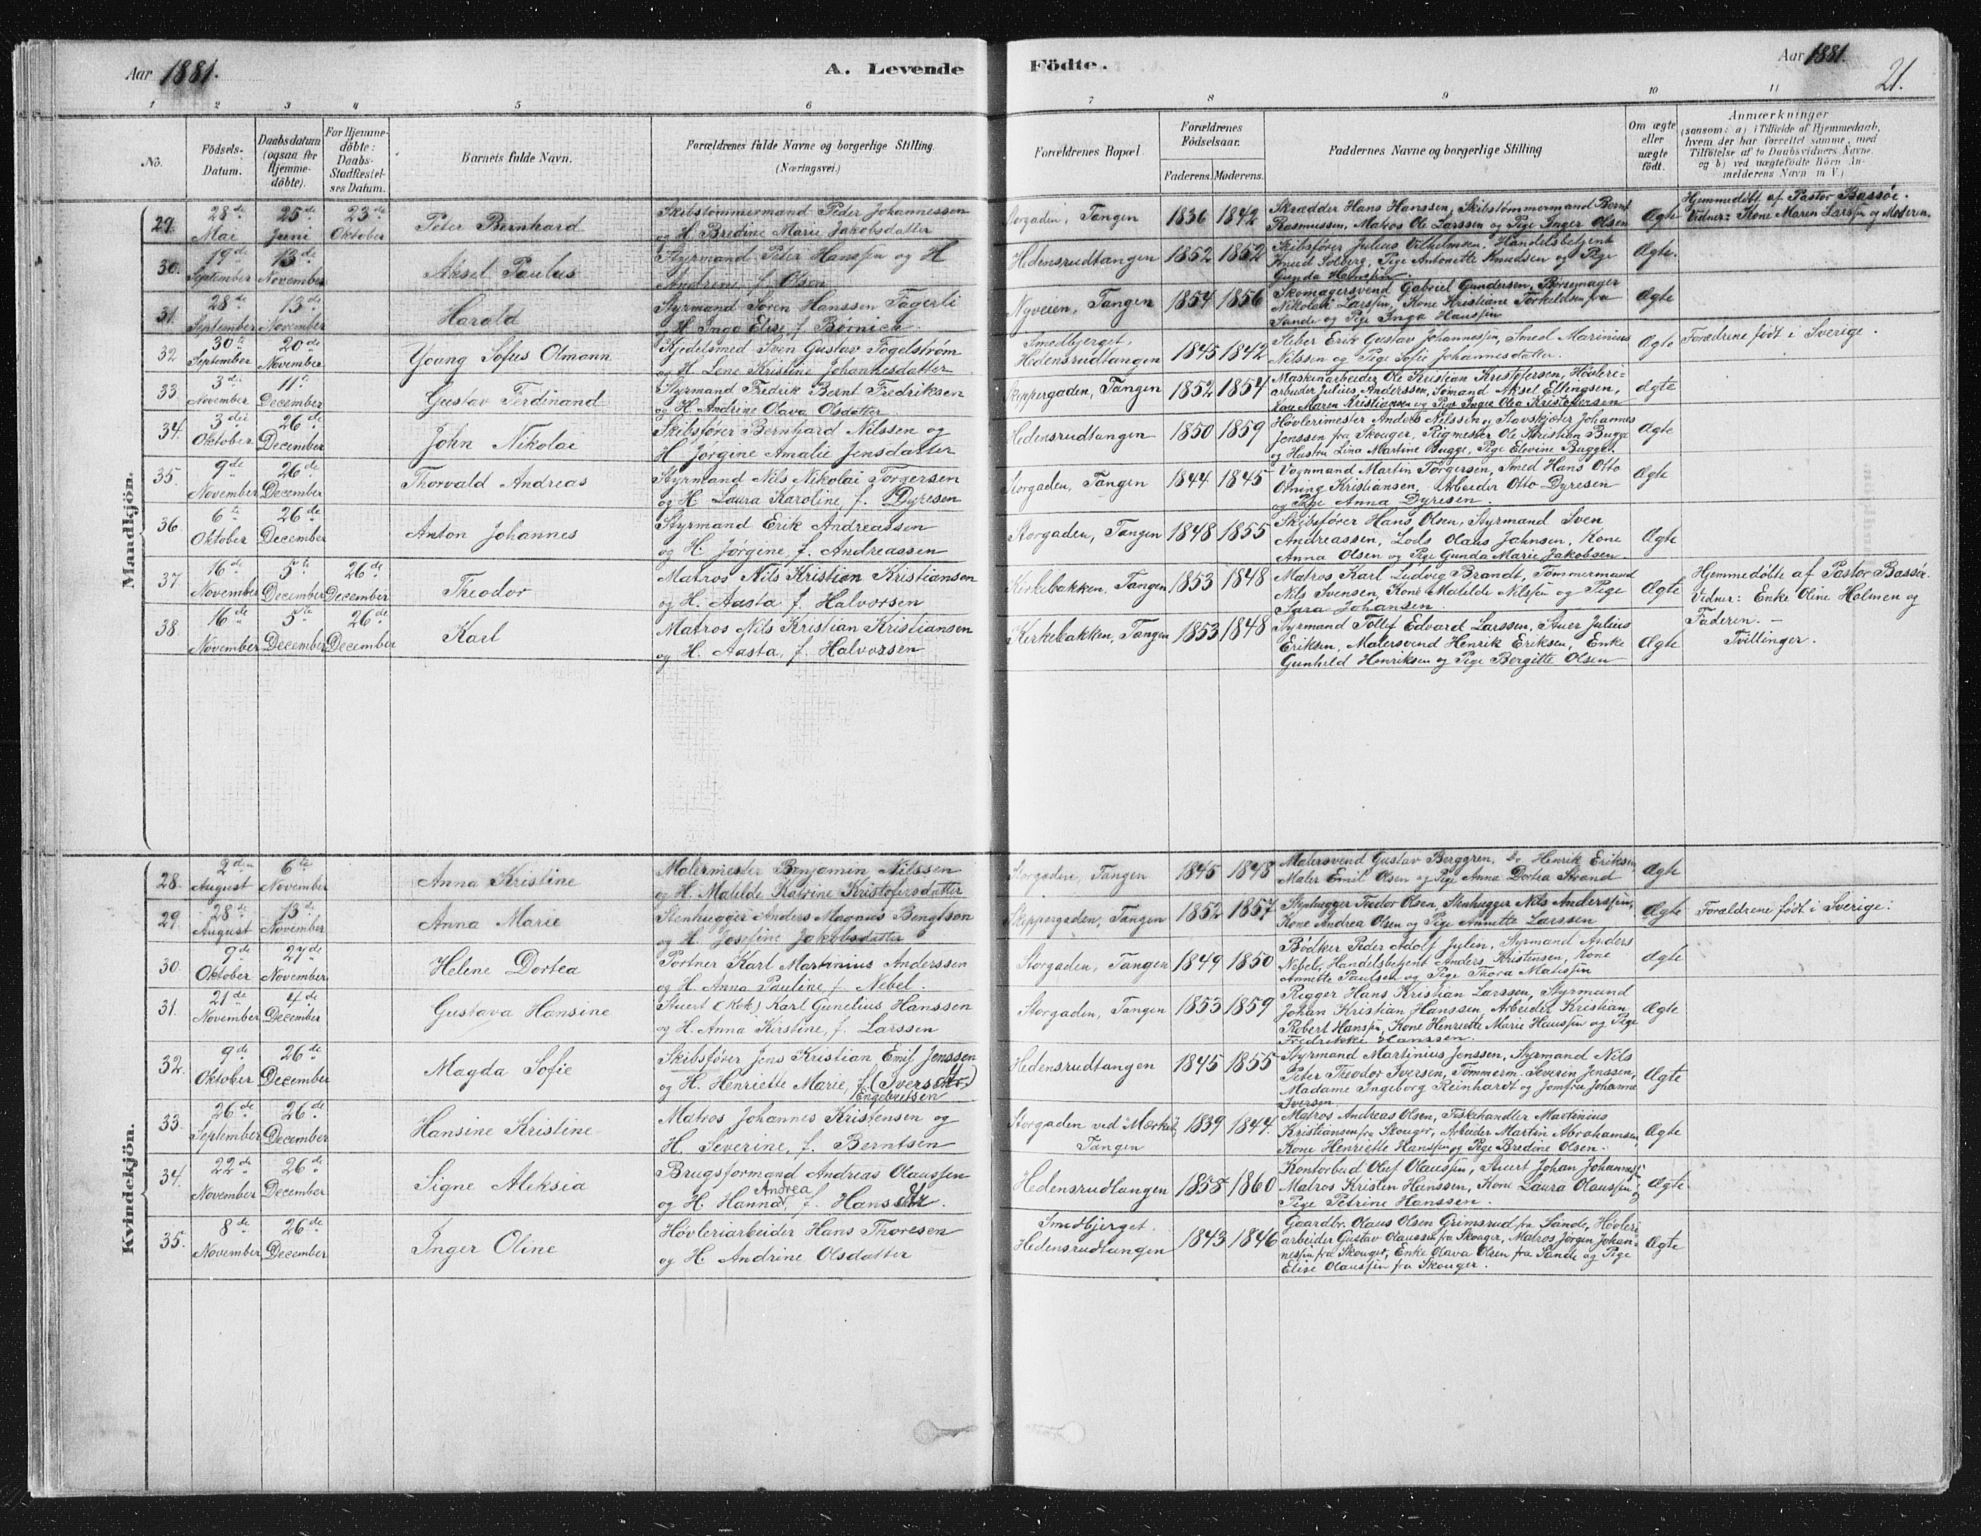 Aar 1881.
A. Levende
Födte.
Aar 1881.
21.
1 2 3 4 5 6 7 8 9 10 11
No.
Födsels-
Datum.
Daabsdatum
(ogsaa for
Hjemme-
döbte).
For Hjemme-
döbte:
Daabs-
Stadfæstel-
ses Datum.
Barnets fulde Navn.
Forældrenes fulde Navne og borgerlige Stilling.
(Næringsvei.)
Forældrenes Bopæl.
Forældrenes
Födselsaar.
Faderens. Moderens.
Faddernes Navne og borgerlige Stilling
Om ægte
eller
uægte
födt.
Anmærkninger
(saasom: a) i Tilfælde af Hjemmedaab,
hvem der har forrettet samme, med
Tilföielse af to Daabsvidners Navne.
og b) ved uægtefödte Börn An-
melderens Navn m V.)
Mandkjön.
29. 28de Mai 25de Juni 23de Oktober Peter Bernhard
Skibstømmermand Peder Johannessen
og H. Bredine Marie Jakobsdatter
Storgaden, Tangen 1836 1842
Skrædder Hans Hanssen, Skibstømmermand Bernt
Rasmussen, Matros Ole Larssen og Pige Inger Olsen
Ægte
Hjemmedöbt af Pastor Bassøe.
Vidner: Kone Maren Larssen og Moderen.
30. 19de September 13de November Aksel Paulus
Styrmand Peter Hanssen og H
Andrine f. Olsen
Hedensrudtangen 1852 1852
Skibsfører Julius Vilhelmsen, Handelsbetjent
Knud Solberg, Pige Antonette Knudsen og Pige
Gunda Hanssen
Ægte.
31. 28de September 13de November Harald
Styrmand Søren Hanssen Fagerli
og H. Inga Elise f. Bernica
Nyveien, Tangen 1854 1856
Skomagersvend Gabriel Gundersen, Børsemager
Nikolai Larssen, Kone Kristiane Torkildsen fra
Sande og Pige Inga Hanssen
Ægte
32 30te September 20de November Young Sofus Olmann
Kjedelsmed Sven Gustav Fogelstrøm
og H. Lene Kristine Johannesdatter
Smedbjerget,
Hedensrudtangen 1845 1842
Støber Erik Gustav Johannessen, Smed Marinius
Nilssen og Pige Sofie Johannesdatter.
Ægte Forældrene født i Sverige.
33. 3die November 11te December Gustav Ferdinand
Styrmand Fredrik Bernt Fredriksen
og H. Andrine Olava Olsdatter
Skippergaden, Tangen 1852 1854
Maskinarbeider Ole Kristian Kristofersen, Høvleri-
arbeider Julius Anderssen, Sømand Aksel Ellingsen,
Kone Maren Kristiansen og Pige Inger Olea Kristofersen
Ægte
34. 3die Oktober 26de December John Nikolai
Skibsfører Bernhard Nilssen og
H Jørgine Amalie Jensdatter
Hedensrudtangen 1850 1859
Høvlerimester Anders Nilssen og Stavskjører Johannes
Jenssen fra Skouger, Rigmester Ole Kristian Bugge
og Hustru Lina Martine Bugge, Pige Elevine Bugge.
Ægte
35. 9de November 26de December Thorvald Andreas
Styrmand Nils Nikolai Torgersen
og H. Laura Karoline, f. Dyresen
Storgaden, Tangen 1844 1845
Vognmand Martin Torgersen, Smed Hans Otto
Orning Kristiansen, Arbeider Otto Dyresen
og Pige Anna Dyresen.
Ægte
36 6te Oktober 26de December Anton Johannes
Styrmand Erik Andreassen
og H. Jørgine, f. Andreassen
Storgaden, Tangen 1848 1855
Skibsfører Hans Olsen, Styrmand Sven
Andreassen, Lods Olaus Jahnsen, Kone
Anna Olsen og Pige Gunda Marie Jakobsen.
Ægte
37. 16de November 5te December 26de December Theodor
Matros Nils Kristian Kristiansen
og H. Aasta f. Halvorsen
Kirkebakken, Tangen 1853 1848
Matros Karl Ludvig Brandt, Tømmermand
Nils Svensen, Kone Matilde Nilssen og Pige
Sara Johansen.
Ægte
Hjemmedøbte af Pastor Bassøe.
Vidner: Enke Oline Holmen og
Faderen. —
Tvillinger.
38. 16de November 5te December 26de December Karl
Matros Nils Kristian Kristiansen
og H. Aasta, f. Halvorsen
Kirkebakken, Tangen 1853 1848
Styrmand Tollef Edvard Larssen, Stuer Julius
Eriksen, Malersvend Henrik Eriksen, Enke
Gunhild Henriksen og Pige Bergitte Olsen
Ægte
Kvindekjön.
28. 2den August 6te November Anna Kristine
Malermester Benjamin Nilssen
og H. Matilde Katrine Kristofersdatter
Storgaden, Tangen 1845 1848
Malersvend Gustav Berggren, Do Henrik Eriksen
Maler Emil Olsen og Pige Anna Dortea Strand
Ægte
29. 28de August 13de November Anna Marie
Stenhugger Anders Magnus Bengtson
og H. Josefine Jakobsdatter
Skippergaden, Tangen 1852 1857
Stenhugger Fredor Olsen, Stenhugger Nils Anderssen,
Kone Andrea Olsen og Pige Annette Larssen
Ægte Forældrene født i Sverige.
30. 9de Oktober 27de November Helene Dortea
Portner Karl Martinius Anderssen
og H. Anna Pauline f. Nebel.
Storgaden, Tangen 1849 1850
Bødker Peder Adolf Julen, Styrmand Anders
Nebel, Handelsbetjent Anders Kristensen, Kone
Annette Paulsen og Pige Thora Matissen
Ægte
31. 21de November 4de December Gustava Hansine
Stuert (Kok) Karl Gunelius Hanssen
og H. Anna Kirstine, f. Larssen
Storgaden, Tangen 1853 1859
Rigger Hans Kristian Larssen, Styrmand
Johan Kristian Hanssen, Arbeider Kristian
Robert Hanssen, Kone Henriette Marie Haussen og Pige
Fredrikke Hanssen.
Ægte
32. 9de Oktober 26de December Magda Sofie
Skibsfører Jens Kristian Emil Jenssen
og H. Henriette Marie, f. (Iversen)
Engebretsen
Hedensrudtangen 1845 1855
Styrmand Martinius Jenssen, Styrmand Nils
Peter Theodor Iversen, Tømmerm. Severin Jenssen,
Madame Ingeborg Reinhardt og Jomfru Johanne
Iversen
Ægte
33. 26de September 26de December Hansine Kristine
Matros Johannes Kristensen og
H. Severine, f. Berntsen
Storgaden ved Mærket,
Tangen 1839 1844.
Matros Andreas Olsen, Fiskehandler Martinius
Kristiansen fra Skouger, Arbeider Martin Abrahamsen,
Kone Henriette Hanssen og Pige Bredine Olsen.
Ægte
34. 22de November 26de December Signe Aleksia
Brugsformand Andreas Olaussen
og H. Hanna Andrea, f. Hanssen.
Hedensrudtangen 1855 1860
Kontorbud Oluf Olaussen, Stuert Johan Johannessen
Matros Kristen Hanssen, Kone Laura Olaussen og
Pige Petrine Hanssen.
Ægte
35. 8de November 26de December Inger Oline
Høvleriarbeider Hans Thoresen
og H. Andrine Olsdatter
Smedbjerget.
Hedensrudtangen 1843 1846
Gaardbr. Olaus Olsen Grimsrud fra Sande, Høvleri
arbeider Gustav Olaussen fra Skouger, Matros Jørgen Johan-
nessen fra Skouger, Enke Olava Olsen fra Sande og Pige
Elise Olaussen fra Skouger.
Ægte